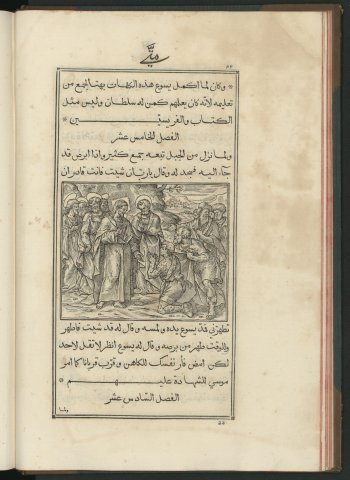 متّى
٢٢
* وكان لما اكمل يسوع هذه الكلمات بهت الجمع من
تعليمه لانه كان يعلمهم كمن له سلطان وليس مثل
الكتاب والفريسيين *
الفصل الخامس عشر
ولما نزل من الجبل تبعه جمع كثير واذا ابرص قد
جاء اليه فسجد له وقال يا رب ان شيت فانت قادر ان
تطهرني فمد يسوع يده ولمسه وقال له قد شيت فاطهر
وللوقت طهر من برصه وقال له يسوع انظر لا تقل لاحد
لكن امض فار نفسك للكاهن وقرب قربانا كما امر
موسى للشهادة عليهم *
الفصل السادس عشر
ولما